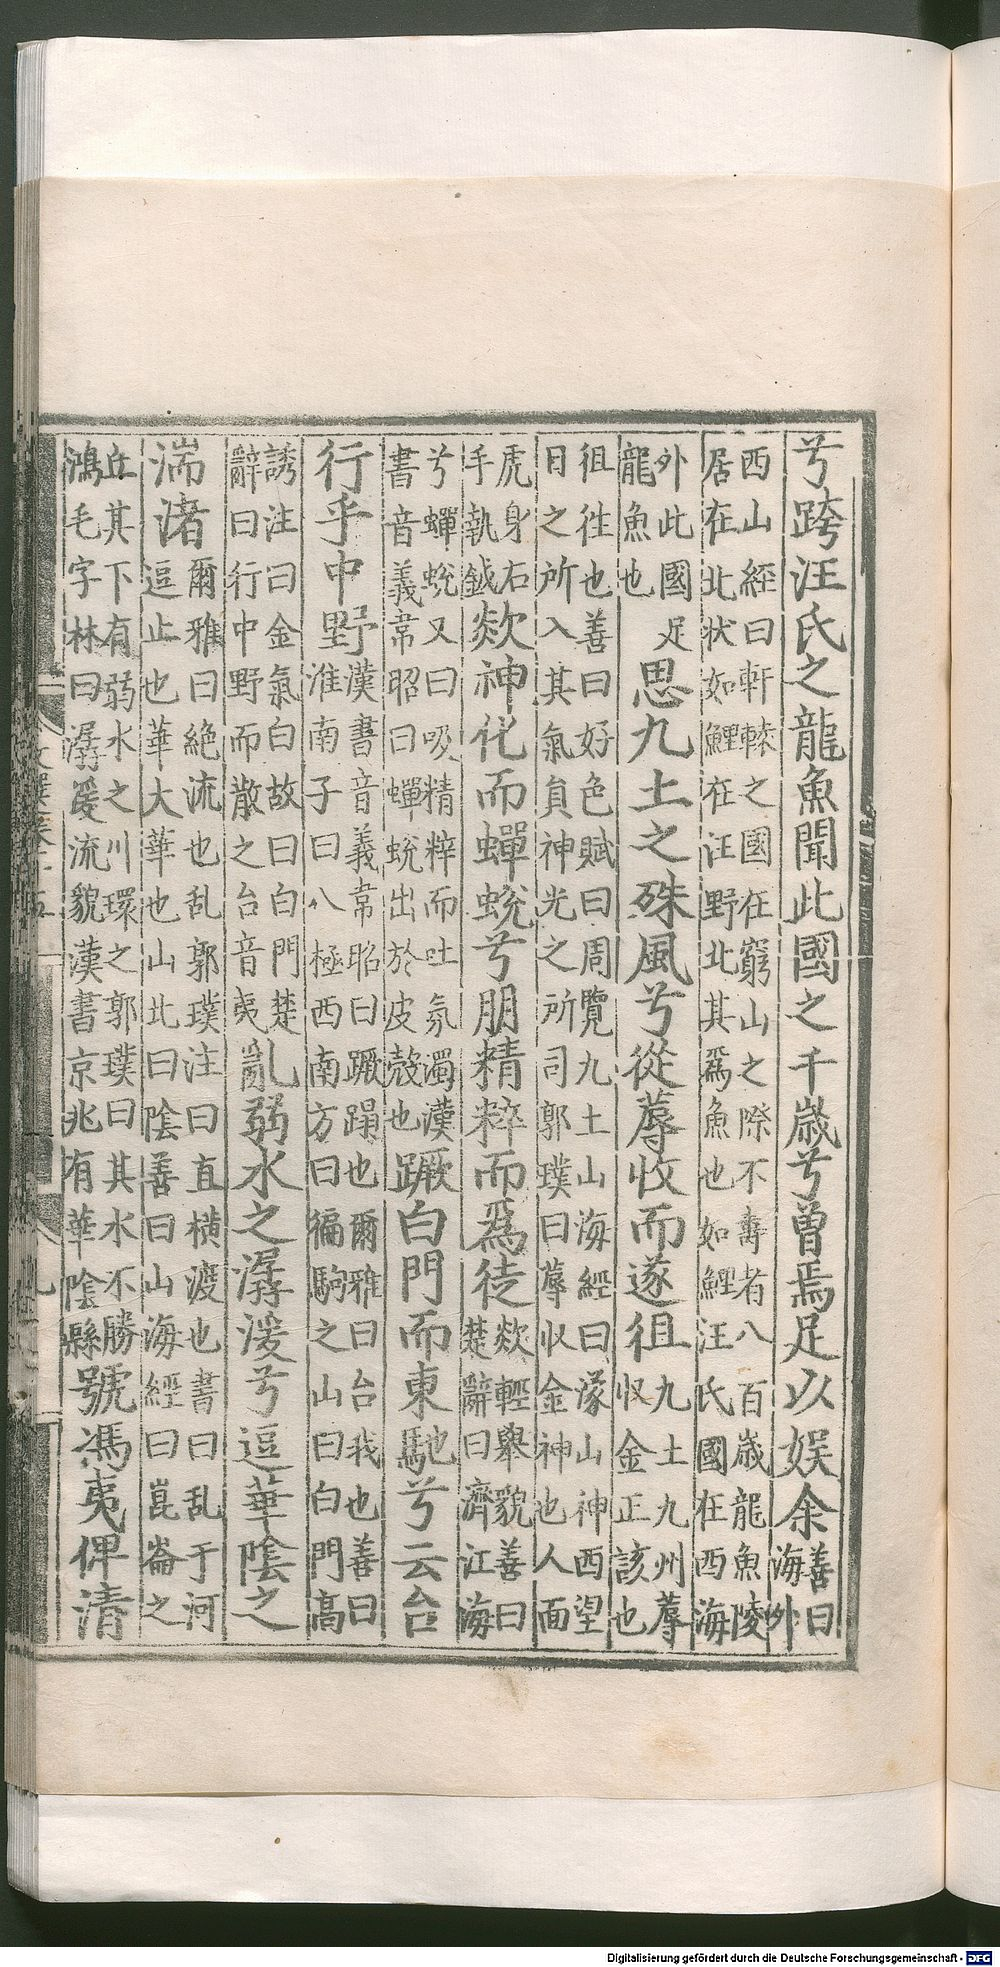 兮跨汪氏之龍魚聞此國之千歲兮曾焉足以娱余善曰海外
西山經曰軒轅之國在窮山之際不壽者八百歲龍魚陵居在北狀如鯉在汪野北其爲魚也如鯉汪氏國在西海
外此國足龍魚也思九土之殊風兮從蓐收而遂徂九土九州蓐收金正該也
徂徃也善曰好色賦曰周覽九土山海經曰濛山神西望日之所入其氣負神光之所司郭璞曰蓐收金神也人面
虎身右手執鉞欻神化而蟬蛻兮朋精粹而爲徒欻輕舉貌善曰楚辭曰濟江海
兮蟬蛻又曰吸精粹而吐氛濁漢書音義韋昭曰蟬蛻出於皮殼也蹶白門而東馳兮云台
行乎中野漢書音義韋昭曰蹶蹋也爾雅曰台我也善曰淮南子曰八極西南方曰徧駒之山曰白門高
誘注曰金氣白故曰白門楚辭曰行中野而散之台音夷亂弱水之潺湲兮逗華陰之
湍渚爾雅曰絶流也乱郭璞注曰直横渡也書曰乱于河逗止也華大華也山北曰陰善曰山海經曰崑崙之
丘其下有弱水之川環之郭璞曰其水不勝鴻毛字林曰潺湲流貌漢書京兆有華陰縣號馮夷俾清
Digitalisierung gefördert durch die Deutsche Forschungsgemeinschaft - DFG